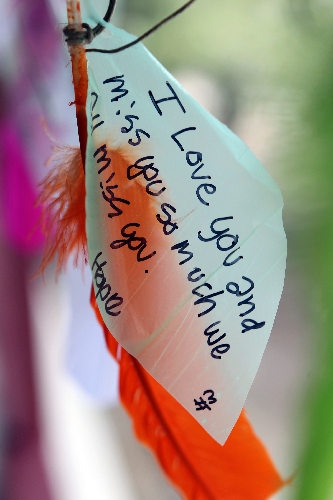 I Love you and
miss you so much we
all miss you.
Hope